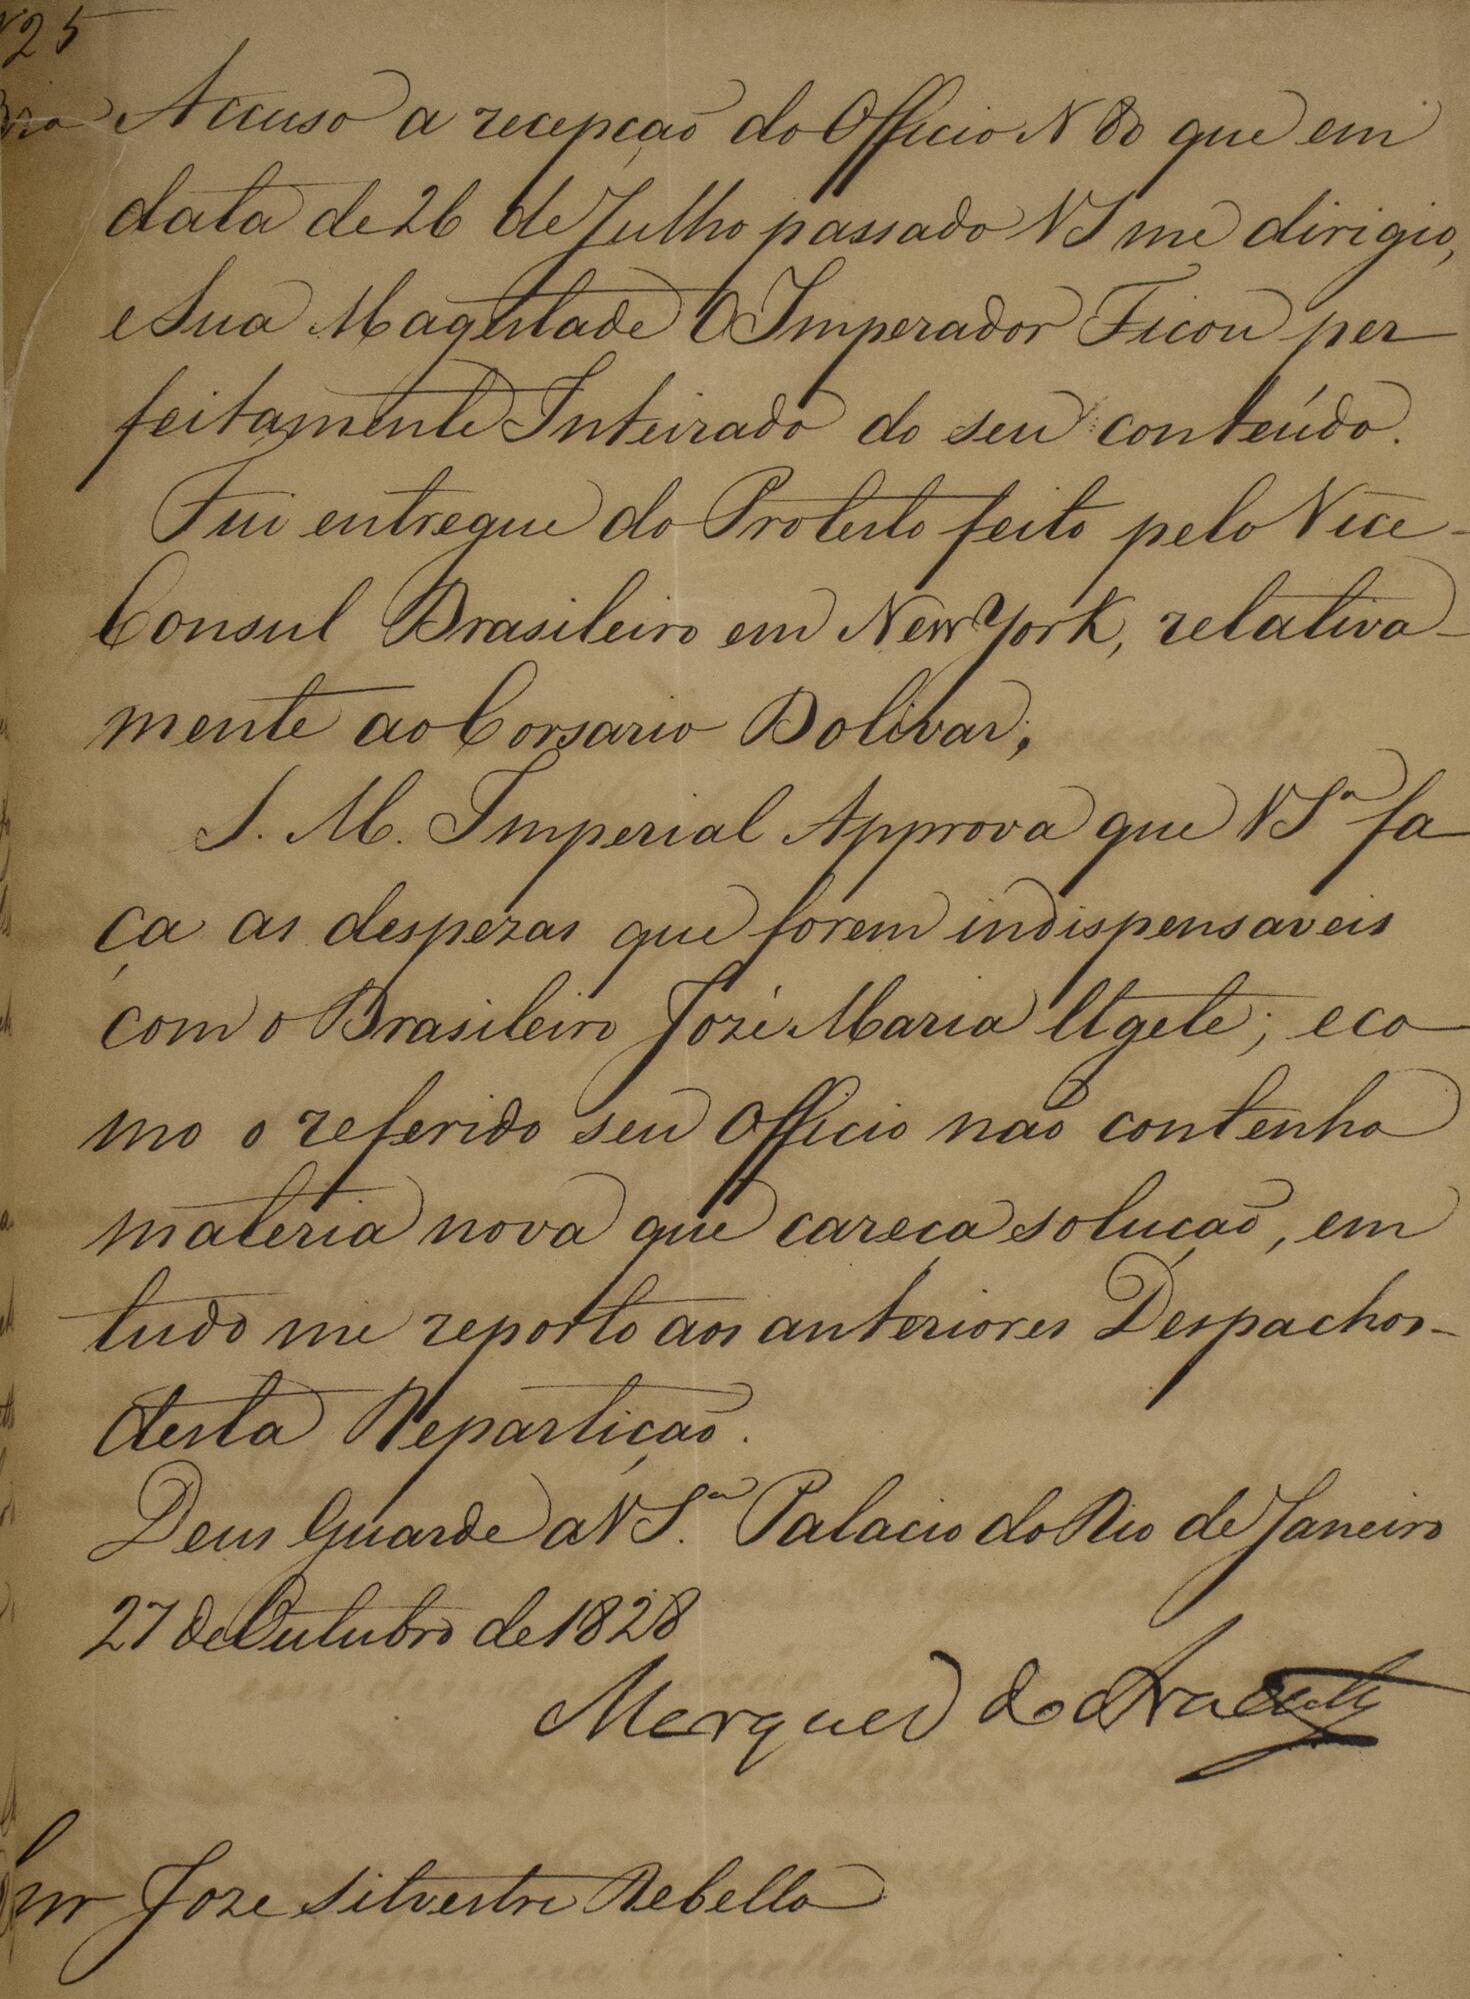 N 25
Accuso a recepção do Officio N 80 que em
data de 26 de Julho passado VS me dirigio,
e Sua Magestade O Imperador Ficou per
feitamente Inteirado do seu conteúdo.
Fui entregue do Protesto feito pelo Vice-
Consul Brasileiro em New York, relativa-
mente ao Corsario Bolivar;
S. M. Imperial Approva que VSª fa
ça as despezas que forem indispensaveis
com o Brasileiro José Maria ; e co
mo o referido seu Officio não contenha
materia nova que careça solução, em
tudo me reporto aos anteriores Despachos
desta Repartição.
Deus Guarde a VS.ª Palacio do Rio de Janeiro
27 de Outubro de 1828
Marquez do Aracaty
Snr Joze Silvestre Rebello